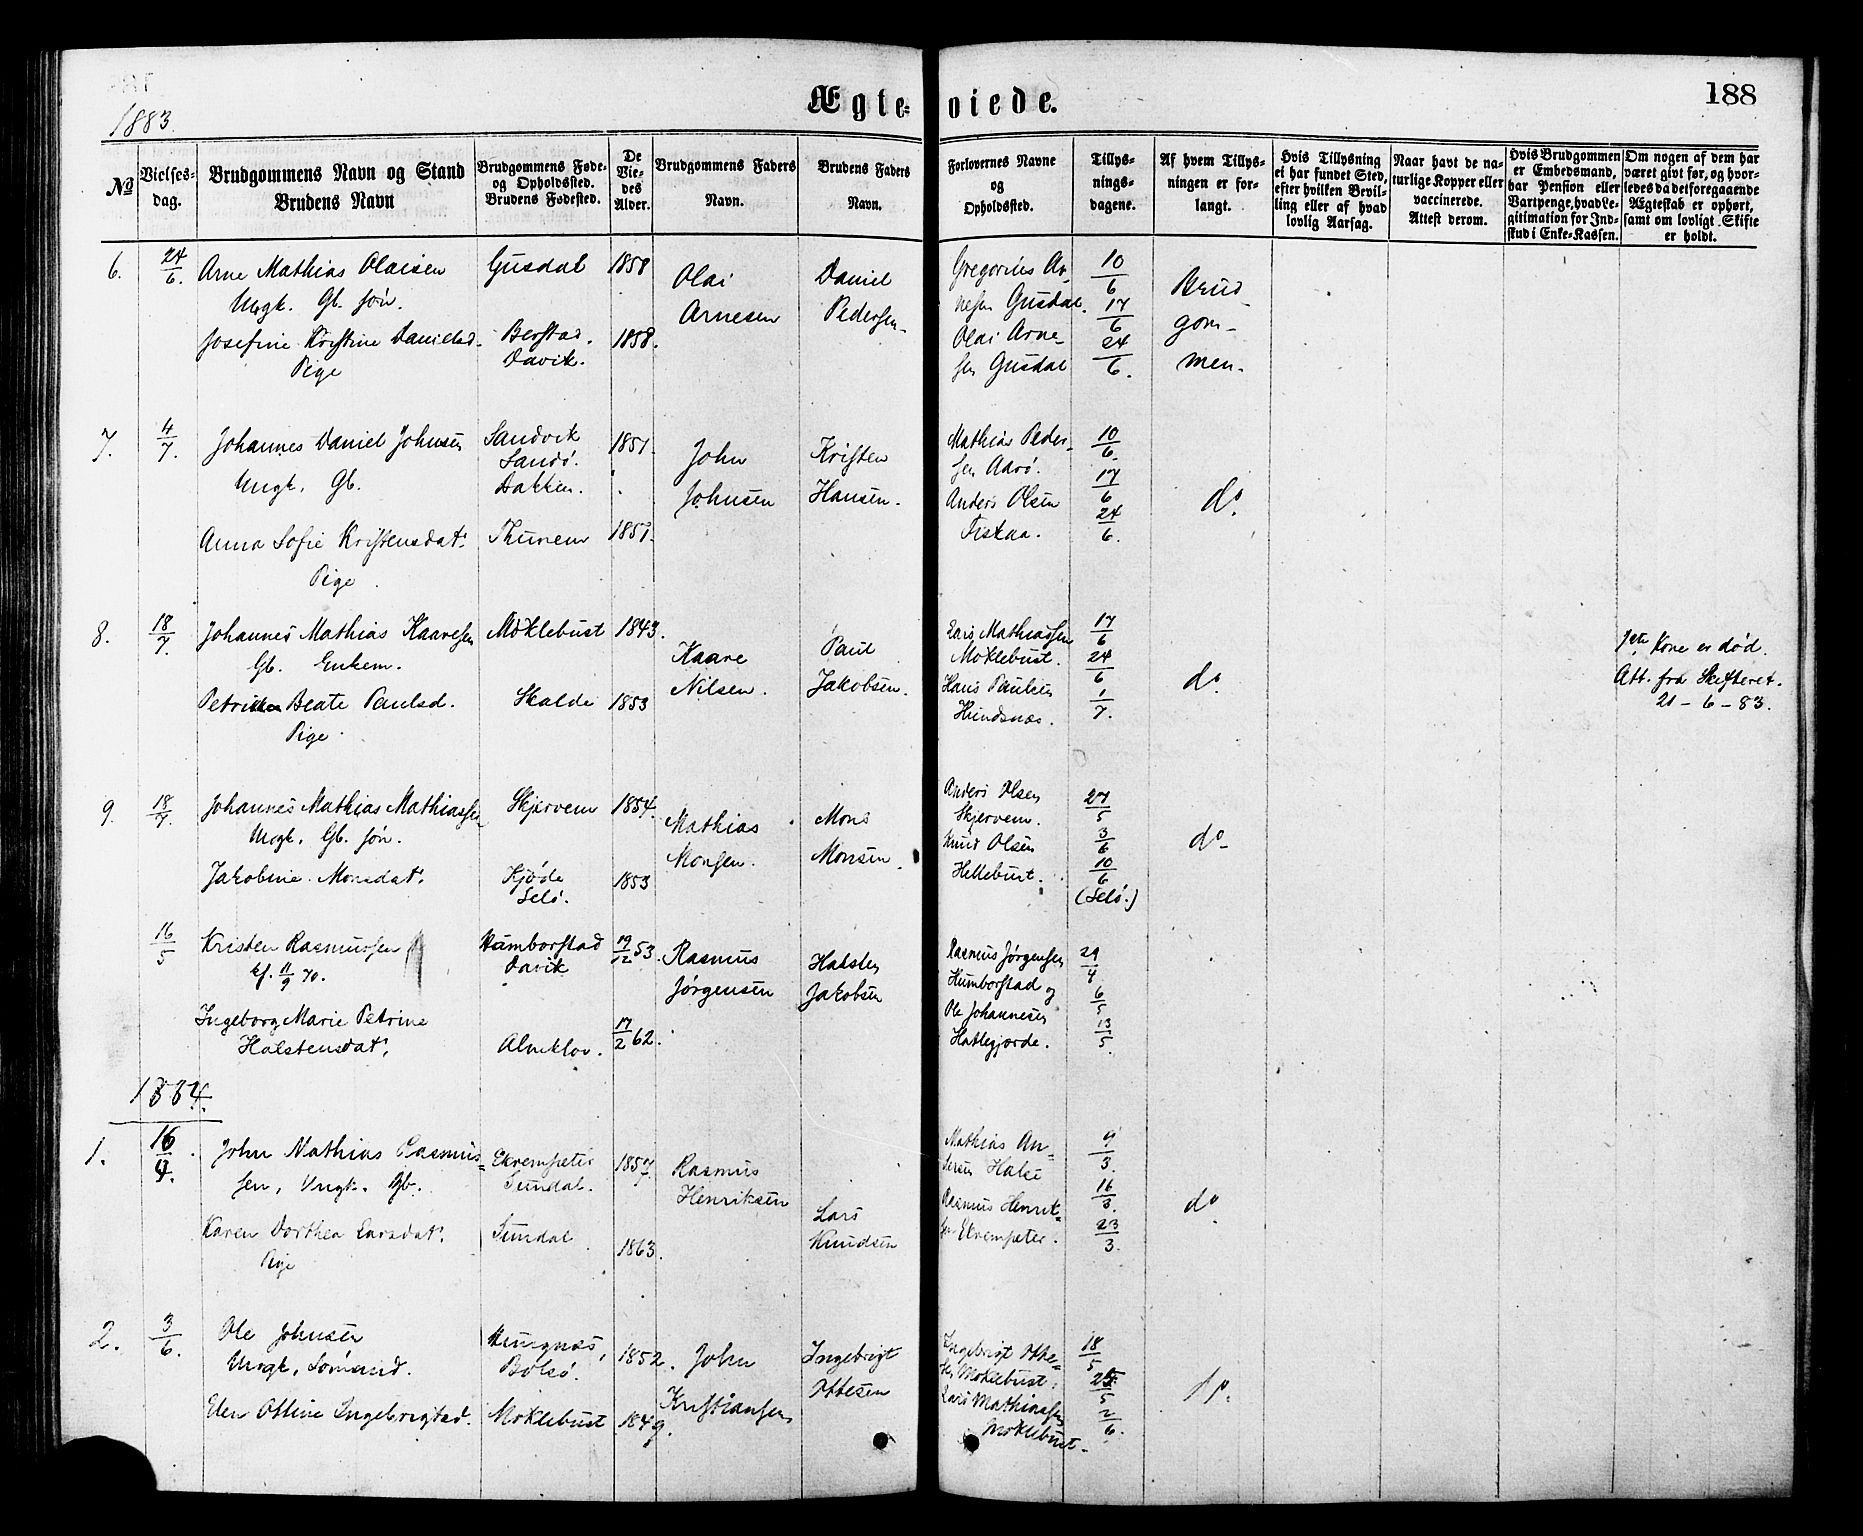 1883.
Ægte-
viede.
188
No
Vielses-
dag.
Brudgommens Navn og Stand
Brudens Navn
Brudgommens Føde-
og Opholdssted.
Brudens Fødested.
De
Vie-
des
Alder.
Brudgommens Faders
Navn.
Brudens Faders
Navn.
Forlovernes Navne
og
Opholdssted.
Tillys-
nings-
dagene.
Af hvem Tillys-
ningen er for-
langt.
Hvis Tillysning
ei har fundet Sted,
efter hvilken Bevil-
ling eller af hvad
lovlig Aarsag.
Naar havt de na-
turlige Kopper eller
vaccinerede.
Attest derom.
Hvis Brudgommen
er Embedsmand,
har Pension eller
Vartpenge, hvad Le-
gitimation for Ind-
skud i Enke-Kassen.
Om nogen af dem har
været gift før, og hvor-
ledes da det foregaaende
Ægteskab er ophørt,
samt om lovligt Skifte
er holdt.
6.
24/6.
Arne Mathias Olaisen
Ungk. Gb. søn.
Josefine Kristine Danielsd.
Pige
Gusdal
Berstad.
Davik.
1858
1858.
Olai
Arnesen
Daniel
Pedersen
Gregorius Ar-
nesen Gusdal.
Olai Arne-
sen Gusdal
10/6
17/6
24/6.
Brud
gom-
men.
7.
4/7.
Johannes Daniel Johnsen
Ungk. Gb.
Anna Sofie Kristensdat.
Pige
Sandvik
Sandø.
Bakken.
Thunem
1851.
1851.
John
Johnsen
Kristen
Hansen.
Mathias Peder-
sen Aarø.
Anders Olsen
Fiskaa.
10/6.
17/6
24/6.
do.
8.
18/7.
Johannes Mathias Kaaresen
Gb. Enkem.
Petrikke Beate Paulsd.
Pige
Moklebust
Skalde
1843.
1853
Kaare
Nilsen.
Paul
Jakobsen.
Lars Mathiassen
Moklebust.
Hans Paulsen
Hundsnæs.
17/6
24/6
1/7.
do.
1ste Kone er død.
Att. fra Skifteret.
21-6-83.
9.
18/7.
Johannes Mathias Mathiassen
Ungk. Gb. søn.
Jakobine Monsdat.
Skjervem
Kjøde
Selø.
1854.
1853
Mathias
Monsen.
Mons
Monsen
Anders Olsen
Skjervem.
Knud Olsen
Hellebust.
27/5
3/6
10/6
(Selø.)
do.
16/5
Kristen Rasmussen
kf. 11/9 70.
Ingeborg Marie Petrine
Halstensdat.
Humborstad
Davik
Almklov.
19/12 53.
17/2 62.
Rasmus
Jørgensen
Halsten
Jakobsen
Rasmus Jørgensen
Humborstad og
Ole Johannesen
Hatlegjærde.
29/4
6/5
13/5.
1884.
1.
16/4.
John Mathias Rasmus-
sen, Ungk. Gb.
Karen Dorthea Larsdat.
Pige
Ekrempeter
Sundal.
Sundal
1857.
1863.
Rasmus
Henriksen
Lars
Knudsen
Mathias An-
dersen Halse
Rasmus Henrik-
sen Ekrempeter.
9/3.
16/3.
23/3.
do
2.
3/6.
Ole Johnsen
Ungk. Sømand.
Elen Oline Ingebrigtsd.
Bolsø.
Moklebust
1852.
1849.
John
Kristiansen
Ingebrigt
Ottesen
Ingebrigt Otte-
sen Moklebust.
Lars Mathiassen
Moklebust.
18/5
25/5
2/6.
do.